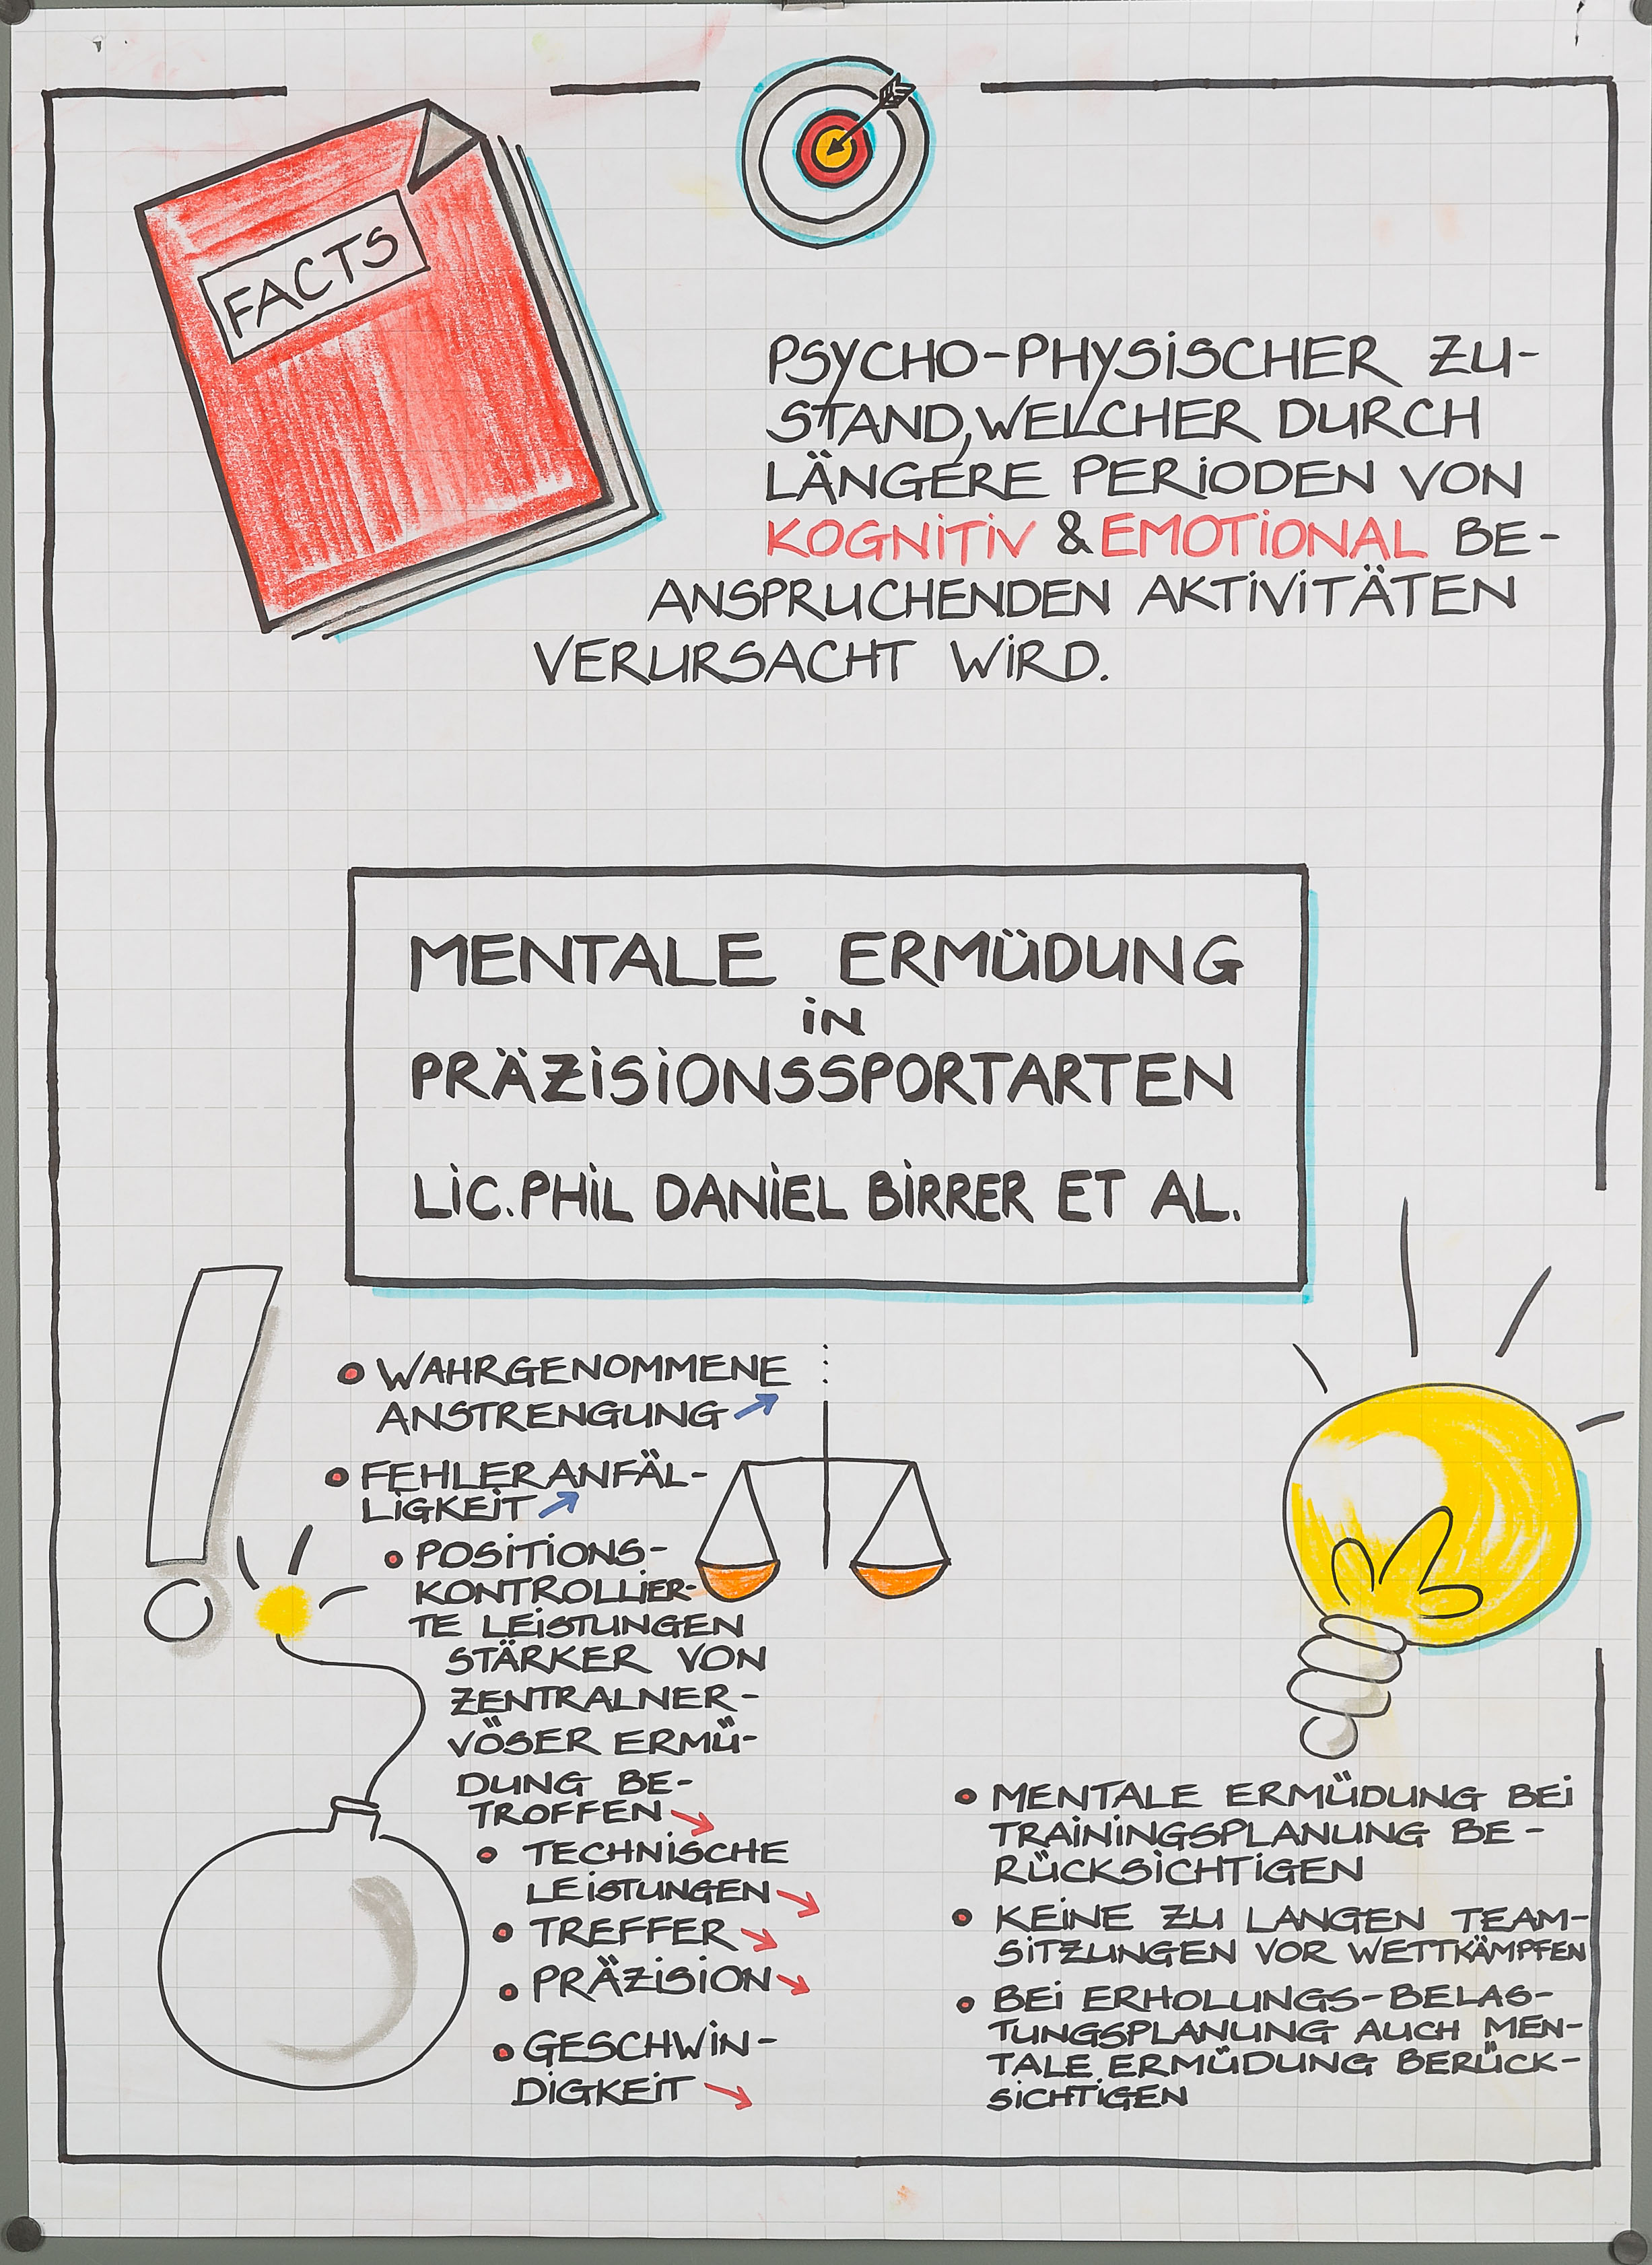 FACTS
PSYCHO-PHYSISCHER ZU-
STAND, WELCHER DURCH
LÄNGERE PERIODEN VON
KOGNITIV & EMOTIONAL BE-
ANSPRUCHENDEN AKTIVITÄTEN
VERURSACHT WIRD.
MENTALE ERMÜDUNG
IN
PRÄZISIONSSPORTARTEN
LIC. PHIL DANIEL BIRRER ET AL.
• WAHRGENOMMENE
ANSTRENGUNG ↗
• FEHLERANFÄL-
LIGKEIT ↗
• POSITIONS-
KONTROLLIER-
TE LEISTUNGEN
STÄRKER VON
ZENTRALNER-
VÖSER ERMÜ-
DUNG BE-
TROFFEN ↘
• TECHNISCHE
LEISTUNGEN ↘
• TREFFER ↘
• PRÄZISION ↘
• GESCHWIN-
DIGKEIT ↘
• MENTALE ERMÜDUNG BEI
TRAININGSPLANUNG BE-
RÜCKSICHTIGEN
• KEINE ZU LANGEN TEAM-
SITZUNGEN VOR WETTKÄMPFEN
• BEI ERHOLUNGS-BELAS-
TUNGSPLANUNG AUCH MEN-
TALE ERMÜDUNG BERÜCK-
SICHTIGEN